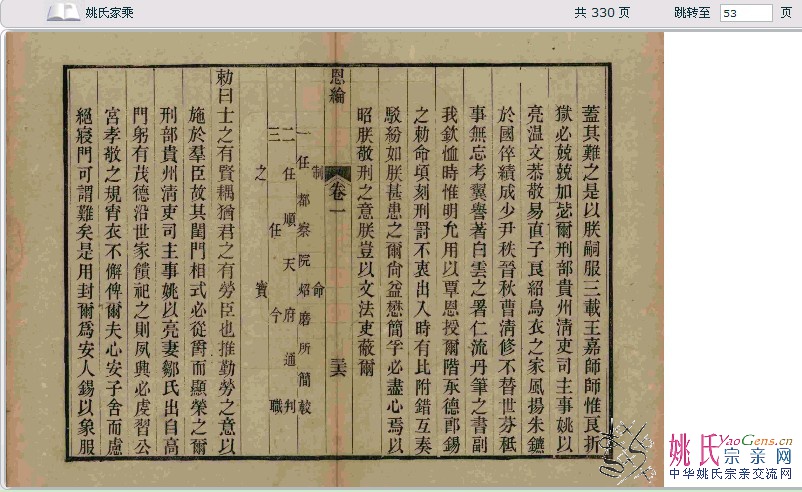 姚氏家乘
共 330 页
跳转至 53 页
蓋其難之是以朕嗣服三載王嘉師師惟良折
獄必兢兢加毖爾刑部貴州清吏司主事姚以
亮温文恭敬易直子良紹烏衣之家風揚朱鑣
於國倅續成少尹秩晉秋曹清修不替世芬秖
事無忘考翼譽著白雲之署仁流丹筆之書副
我欽恤時惟明允用以覃恩授爾階承德郎錫
之勅命頃刻刑罰不衷出入時有比附錯互奏
駁紛如朕甚患之爾尚益懋簡孚必盡心焉以
昭朕敬刑之意朕豈以文法吏蔽爾
恩綸
卷一
制命
一任都察院炤磨所簡較
二任順天府通判
三任今職
之寶
勅曰士之有賢耦猶君之有勞臣也推勤勞之意以
施於羣臣故其閨門相式必從爵而顯榮之爾
刑部貴州清吏司主事姚以亮妻鄒氏出自高
門躬有茂德沿世家饋祀之則夙興必虔習公
宮孝敬之規宵衣不懈俾爾夫心安子舍而慮
絕寢門可謂難矣是用封爾爲安人錫以象服
姚氏宗亲网
YaoGens.cn
中华姚氏宗亲交流网